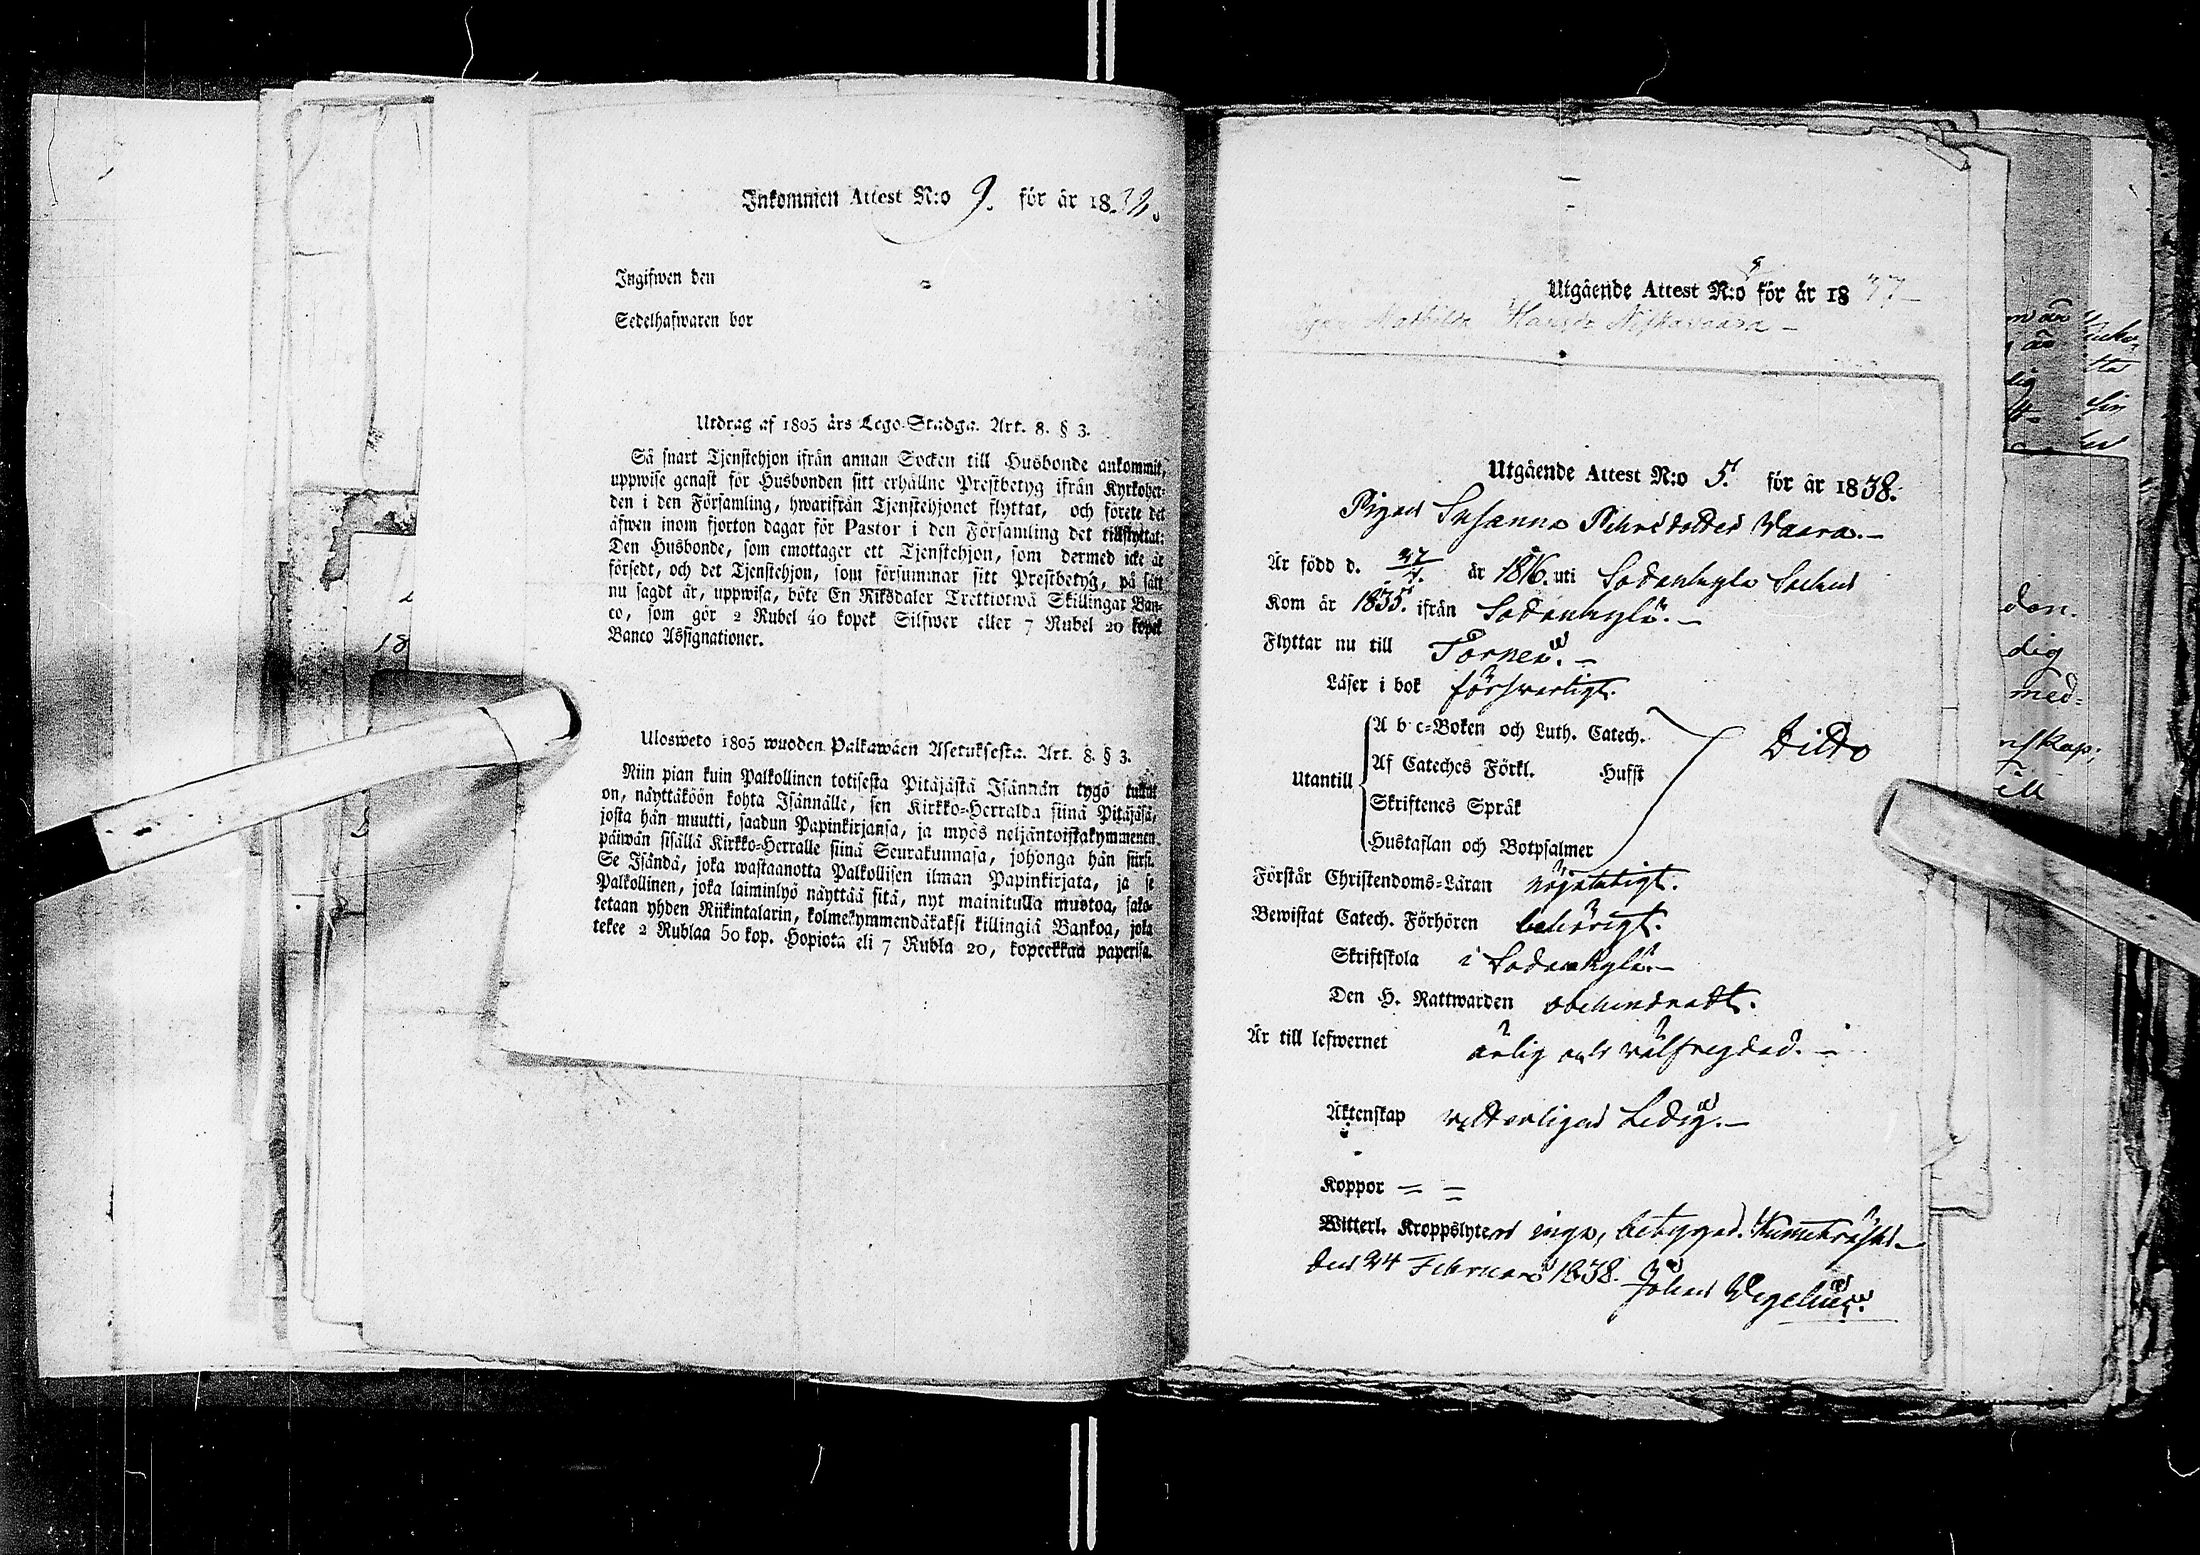 Inkommen Attest N:o 9. för år 18
Ingifwen den
Sedelhafwaren bor
Utdrag af 1805 års Lego-Stadga. Art. 8. § 3.
Så snart Tjenstehjon ifrån annan Socken till Husbonde ankommit,
uppwise genast för Husbonden sitt erhållne Prestbetyg ifrån Kyrkoher-
den i den Församling, hwarifrån Tjenstehjonet flyttat, och förete det
äfwen inom fjorton dagar för Pastor i den Församling det tillflyttat:
Den Husbonde, som emottager ett Tjenstehjon, som dermed icke är
försedt, och det Tjenstehjon, som försummar sitt Prestbetyg, på sätt
nu sagdt är, uppwisa, böte En Riksdaler Trettiotwå Skillingar Ban-
co, som gör 2 Rubel 40 kopek Silfwer eller 7 Rubel 20 kopek
Banco Assignationer.
Ulosweto 1805 wuoden Palkawäen Asetuksesta. Art. 8. § 3.
Niin pian kuin Palkollinen totisesta Pitäjästä Isännän tygö tullut
on, näyttäköön kohta Isännälle, sen Kirkko-Herralda siinä Pitäjäsä,
josta hän muutti, saadun Papinkirjansa, ja myös neljäntoistakymmenen
päiwän sisällä Kirkko-Herralle siinä Seurakunnasa, johonga hän siirsi.
Se Isändä, joka wastaanotta Palkollisen ilman Papinkirjata, ja se
Palkollinen, joka laiminlyö näyttää sitä, nyt mainitulla muotoa, sako-
tetaan yhden Riikintalarin, kolmekymmendäkaksi killingiä Bankoa, joka
tekee 2 Rublaa 50 kop. Hopiota eli 7 Rubla 20, kopeekkaa paperisa.
18
Utgående Attest N:o för år 18
Mathilda Hansdr Niskavaara –
Utgående Attest N:o 5. för år 1838.
Pigan Susanna Pehrsdotter Vaara. –
Är född d. 27/7. år 1816. uti Sodankylä Socken
Kom år 1835. ifrån Sodankylä. –
Flyttar nu till Torneå. –
Läser i bok försvarligt.
A b c-Boken och Luth. Catech.
Af Cateches Förkl. Husst
Utantill Ditto
Skriftenes Språk
Hustaflan och Botpsalmer
Förstår Christendoms-Läran nöjaktigt.
Bewistat Catech. Förhören behörigt.
Skriftskola i Sodankylä. –
Den H. Nattwarden obehindradt.
Är till lefwernet ärlig och välfregdad. –
Äktenskap vetterligen Ledig. –
Koppor — =
Witterl. Kroppslyten inga, betygad. Kumoträsk
den 24 Februari 1838. Johan Wegelius.
dan.
dig
med-
nskap;
till